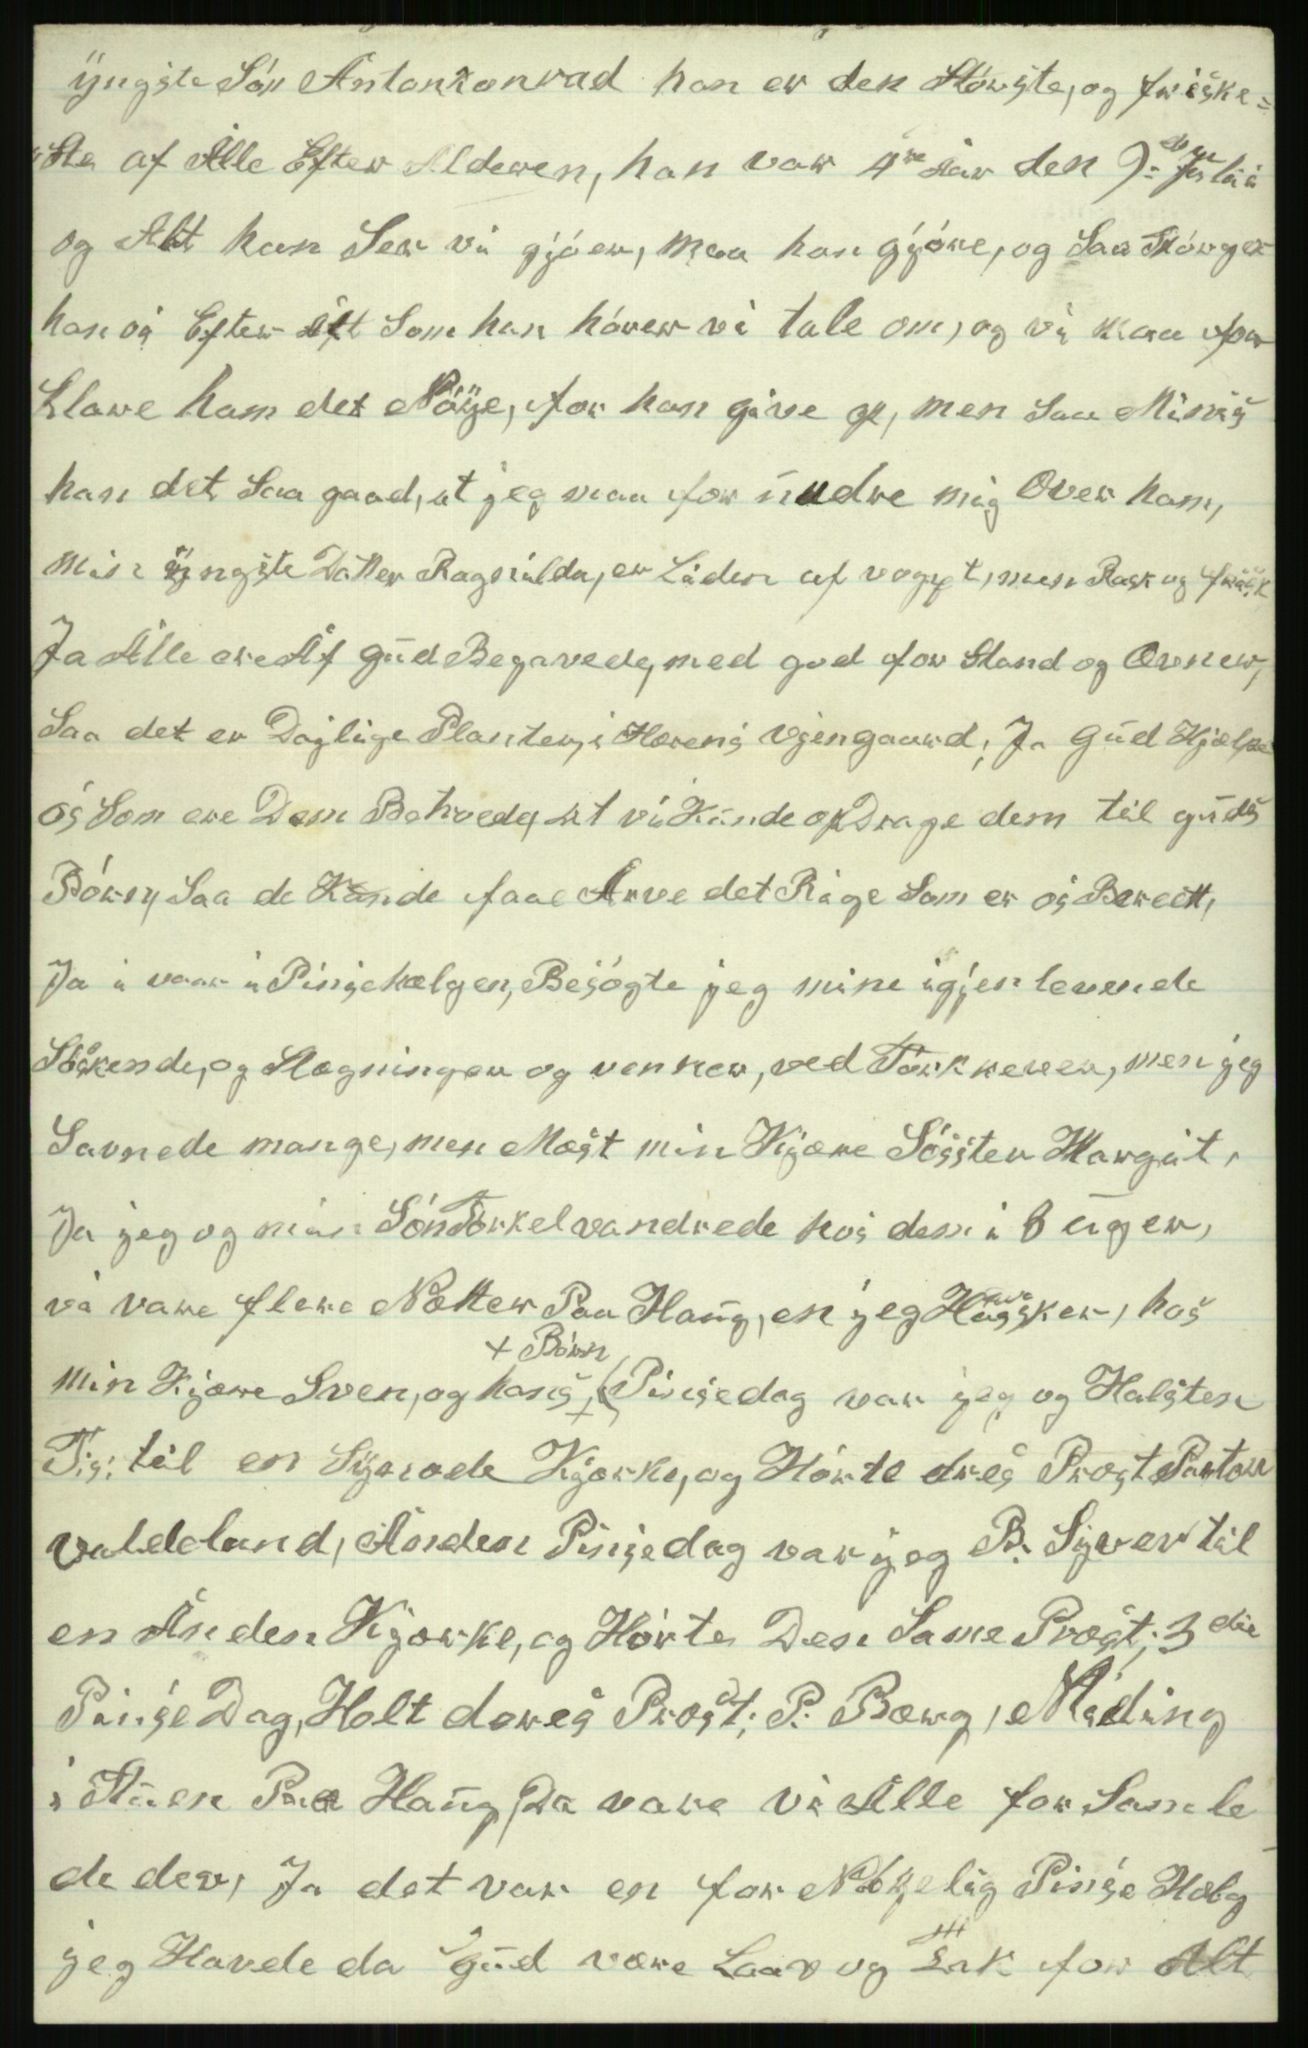 yngste Sön Antonkonrad han er den Störste, og friske=
"ste af Alle Efter Alderen, han var 4re Aar den 9de Juli
og Alt han Ser vi gjöer, maa han gjöre, og Saa Spörger
han os Efter Alt Som han hörer vi tale om, og vi maa for
klare ham det Nöye, for han give op, men Saa Minis
han det Saa gaad, at jeg maa for undre mig Over ham,
min yngste Datter Ragnilda, er Liden af vegst, men Rask og frisk
Ja Alle ere Af Gud Begavede, med god for Stand og Evner,
Saa det er Dajlige Planter, i Herens Vjengaard, Ja Gud Hjælpe
os Som ere Dem Betroede, at vi Kunde opDrage dem til Guds
Börn, Saa de Kunde faae Arve det Rige Som er os Bereett,
Ja i vaar i Pinsehælgen, Besögte jeg mine igjenlevende
Söskende, og Slægninger og venner, ved Törkreven, men jeg
Savnede mange, men Mæst min Kjære Söster Margit,
Ja jeg og min Sön Torkel vandrede hos dem i 6 Uger,
vi vare flere Nætter Paa Haug, en jeg Husker, hos
min Kjære Sven, og hans, + Börn (Pinsedag var jeg og Halsten
Tis: til en Synode Kjærke, og Hörte dres Præst Pastor
Valdeland, Anden Pinsedag var jeg B. Syver til
en Anden Kjærke, og Hörte Den Same Præst, 3die
Pinse Dag, Holt deres Præst, P. Bærg, Möding
i Stuen Paa Haug, Da vare vi Alle for Samle
de der, Ja det var en for Nöyelig Pinse Hælg
jeg Havde da Gud være Laav og Tak for Alt